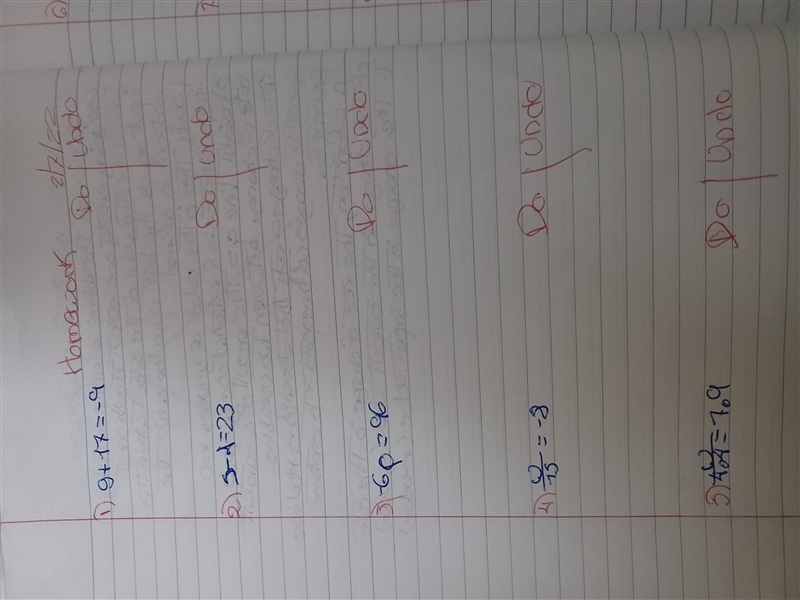 6)
Homework 2/7/22
1) g+17=-9 Do | Undo
2) Do | Undo
3) -6p=96 Do | Undo
4) v/15=-8 Do | Undo
5) =7.9 Do | Undo